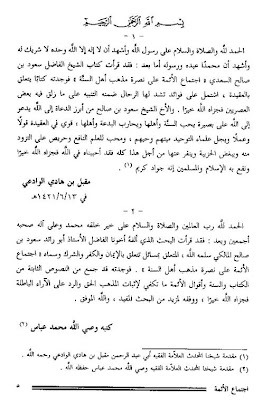 بسم الله الرحمن الرحيم
- ١ -
الحمد لله والصلاة والسلام على رسول الله وأشهد أن لا إله إلا الله وحده لا شريك له
وأشهد أن محمدًا عبده ورسوله أما بعد : فقد قرأت كتاب الشيخ الفاضل سعود بن
صالح السعدي « اجتماع الأئمة على نصرة مذهب أهل السنَّة » فوجدته كتابًا يتعلق
بالعقيدة ، اشتمل على فوائد تشد لها الرحال ضمنت التنبيه على ما زلق فيه بعض
العصريين فجزاه الله خيرًا . والأخ الشيخ سعود بن صالح من أبرز الدعاة إلى الله يدعو
إلى الله على بصيرة يحب السنَّة وأهلها ويحارب البدعة وأهلها ، قوي في العقيدة قوالًا
وعملًا ويجل علماء التوحيد ميتهم وحيهم ، ومحب للعلم النافع وحريص على التزود
منه ويبغض الحزبية وينفر عنها من أجل هذا كله فقد أحببناه في الله فجزاه الله خيرًا
ونفع به الإسلام والمسلمين إنه جواد كريم (١) .
مقبل بن هادي الوادعي
في ١٤٢١/٦/١٣هـ
- ٢ -
الحمد لله رب العالمين والصلاة والسلام على خير خلقه محمد وعلى آله صحبه
أجمعين وبعد : فقد قرأت البحث الذي ألفه أخونا الفاضل الأستاذ أبو رائد سعود بن
صالح المالكي سلمه الله ، المتعلق بمسائل تتعلق بالإيمان والكفر والشرك وسماه « اجتماع
الأئمة على نصرة مذهب أهل السنة » . فوجدته قد جمع من النصوص الثابتة من
الكتاب والسنة وأقوال الأئمة ما يكفي لإثبات المذهب الحق والرد على الآراء الباطلة
فجزاه الله خيرًا ، ووفقه لمزيد من البحث المفيد ، والله الموفق .
كتبه وصي الله محمد عباس (٢)
(١) مقدمة شيخنا المحدث العلامة الفقيه أبي عبد الرحمن مقبل بن هادي الوادعي رحمه الله .
(٢) مقدمة شيخنا المحدث العلامة الفقيه وصي الله محمد عباس حفظه الله .
اجتماع الأئمة ٥